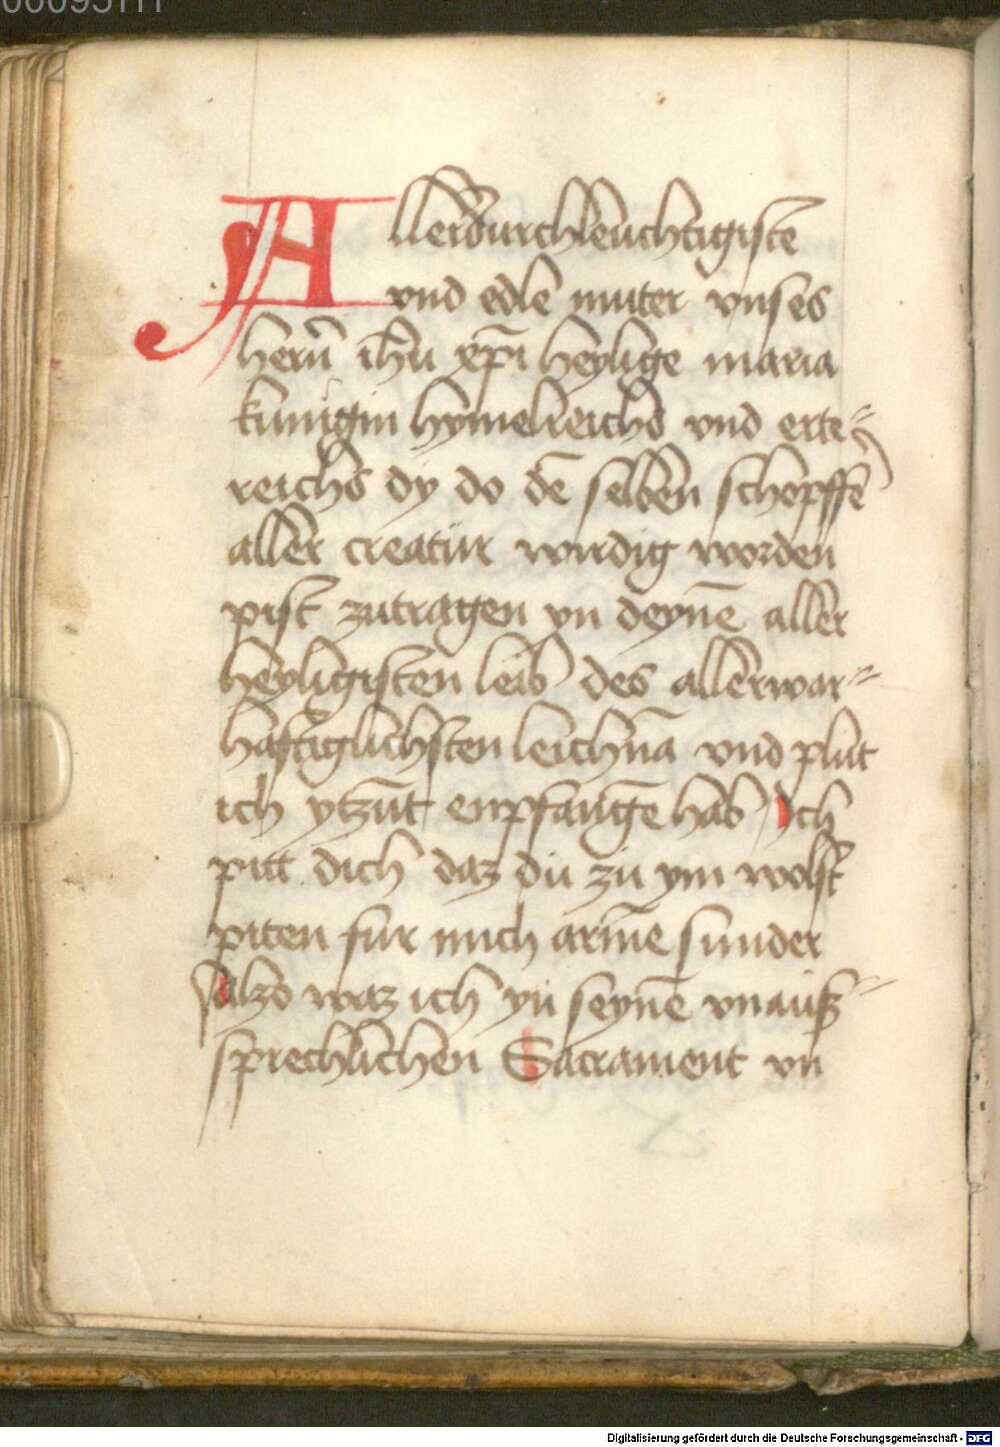 Allerdurchleuchtigiste
vnd edle muter vnses
hern̄ ih̄u xp̄i heylige maria
kunigin hymelreichs vnd erte⸗
reichs dy do dē selben schopffē
aller creatür wirdig worden
pist zutragen vn̄ deynē aller
heyligisten leib des allerwar⸗
haftiglichsten leichnā vnd plut
ich ytzūt enpfangē hab Ich
pitt dich daz du zu ym wolst
piten fur mich armē sunder
alzo waz ich yn seynē vnauß⸗
sprechlichen Sacrament vn̄
Digitalisierung gefördert durch die Deutsche Forschungsgemeinschaft - DFG